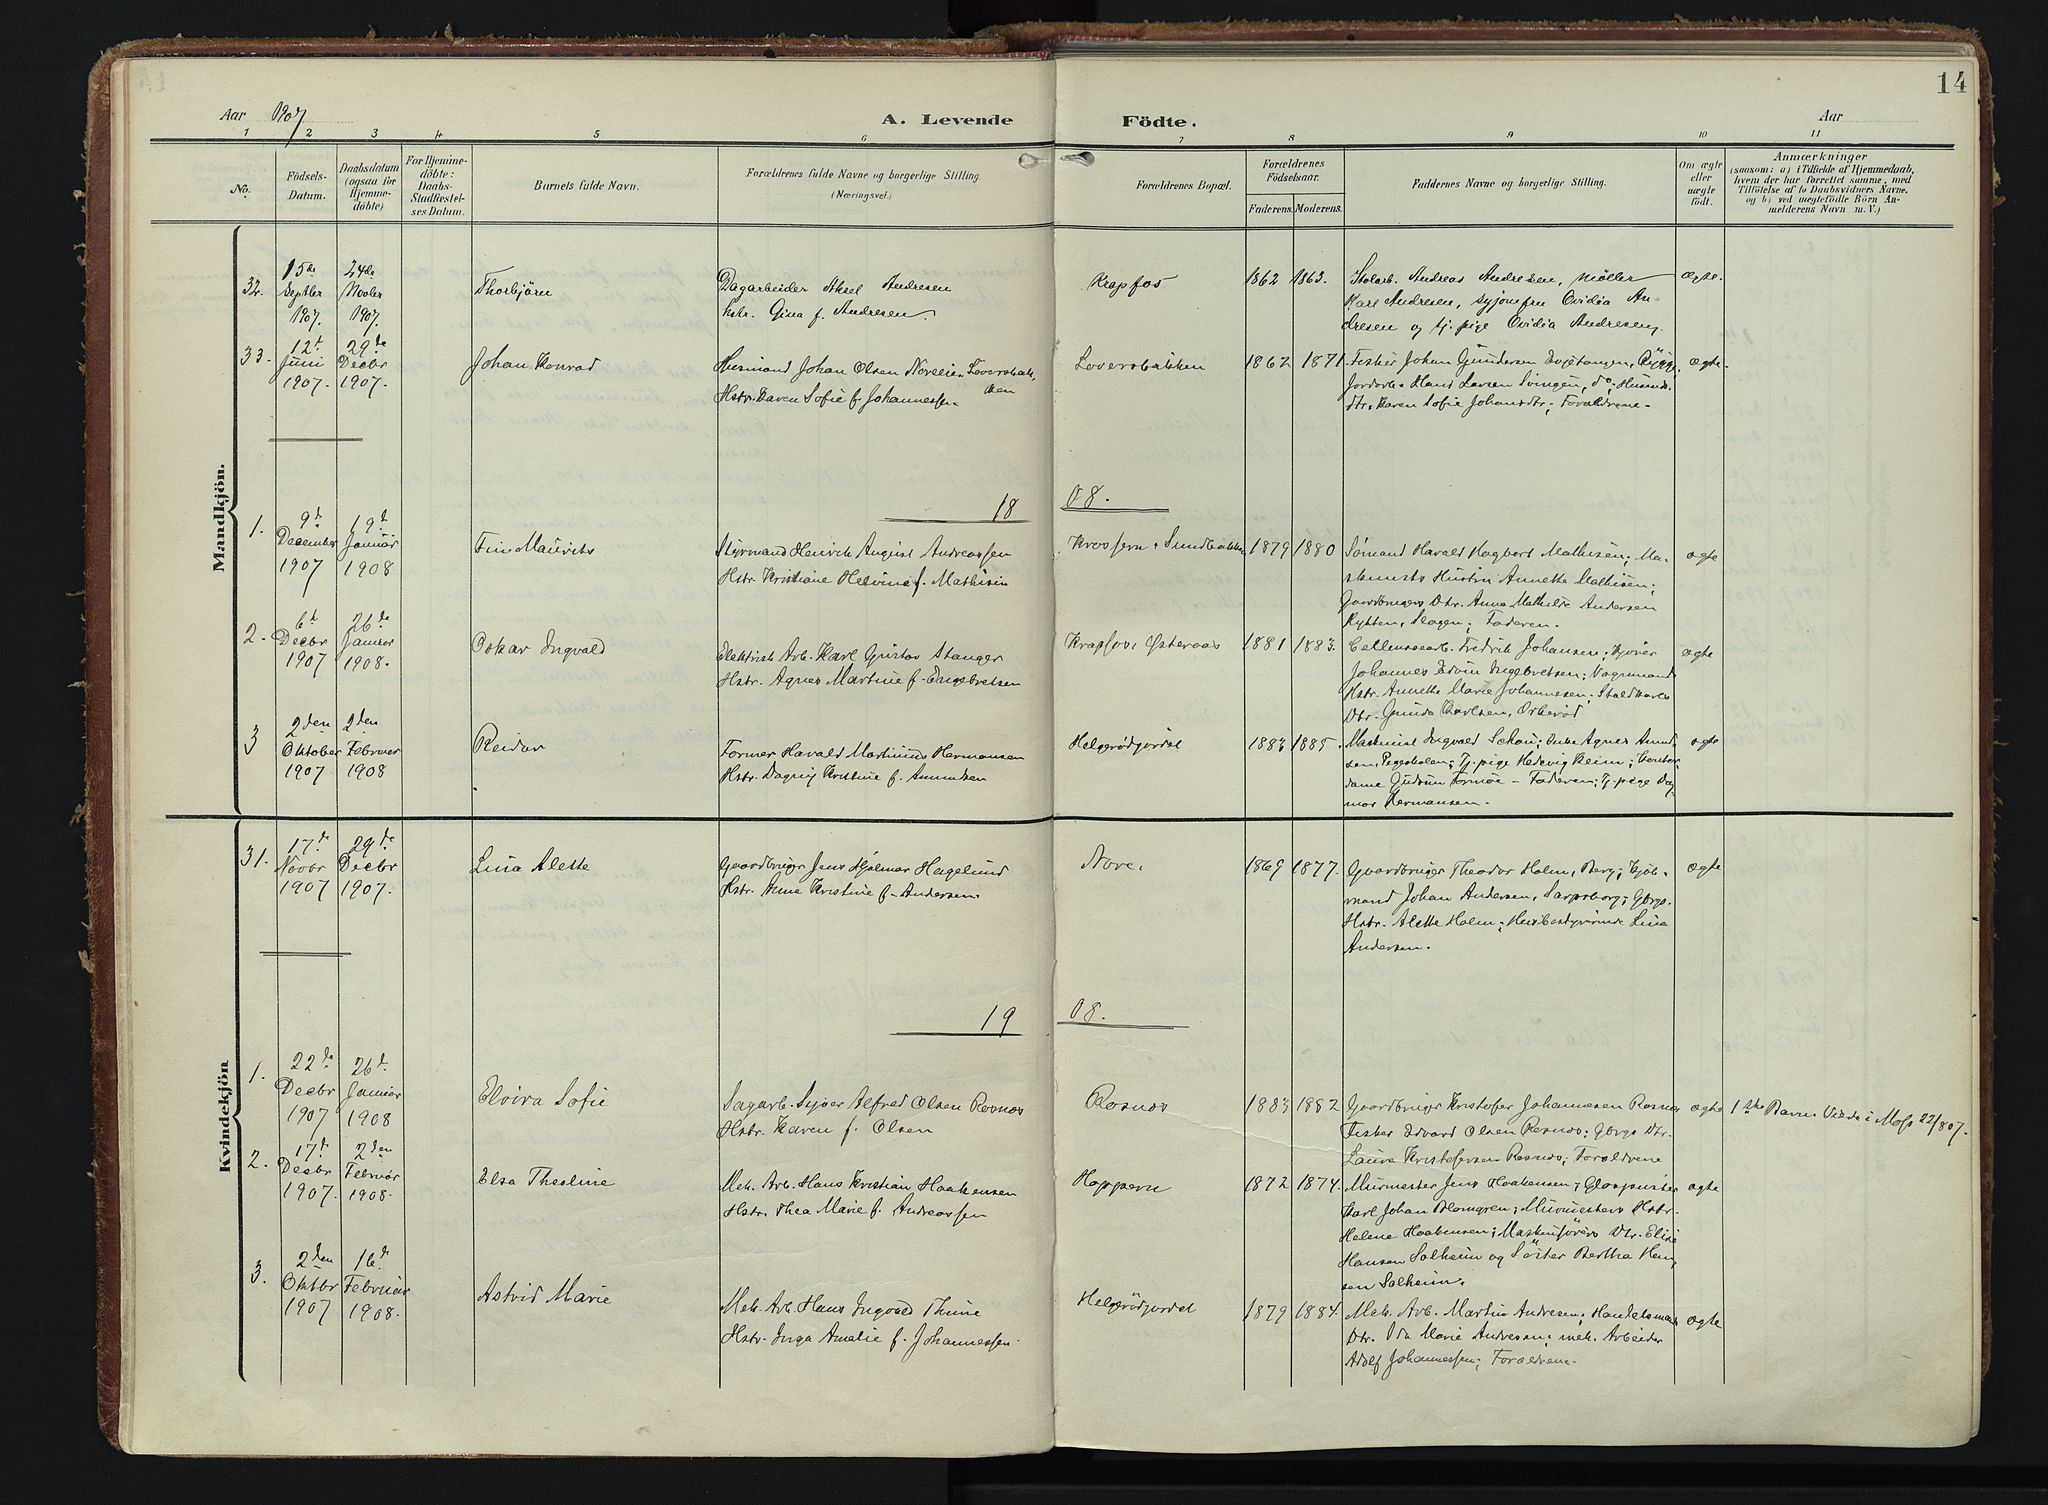 14
Aar 1907
A. Levende Födte.
Aar
1 2 3 4 5 6 7 8 9 10 11
No.
Födsels-
Datum.
Daabsdatum
(ogsaa for
Hjemme-
döbte)
For Hjemme-
döbte:
Daabs-
Stadfæstel-
ses Datum.
Barnets fulde Navn.
Forældrenes fulde Navne og borgerlige Stilling.
(Næringsvei.)
Forældrenes Bopæl.
Forældrenes
Födselsaar.
Faderens. Moderens.
Faddernes Navne og borgerlige Stilling.
Om ægte
eller
uægte
födt.
Anmærkninger
(saasom: a) i Tilfælde af Hjemmedaab,
hvem der har forrettet samme, med
Tilföielse af to Daabsvidners Navne.
og b) ved uægtefödte Börn An-
melderens Navn m. V.)
Mandkjön.
32. 15de Septbr 1907. 24de Novbr 1907.
Thorbjörn
Dagarbeider Aksel Andresen
hstr. Gina f. Andresen.
Krapfos
1862 1863.
Andreas Andresen, møller
Karl Andresen, syjomfru Ovidia An-
dresen og tj. pige Ovidia Andresen.
ægte.
33. 12t Juni 1907. 29de Decbr 1907.
Johan Konrad
Husmand Johan Olsen Loversbak-
ken
Hstr. Karen Sofie f. Johannessen.
Loversbakken
1862 1871.
Fisker Johan Gundersen Evjetangen, Rygge.
Jordarb. Hans Larsen Svingen, do; Husmds.
dtr. Karen Sofie Johansdtr; Forældrene.
ægte.
18 08.
1. 9d December 1907 19d Januar 1908
Fin Maurits
Styrmand Henrik August Andreassen
Hstr. Kristiane Helvine f. Mathisen
Krossern, Sundbakken
1879 1880
Sömand Harald Hagbart Mathisen; Ma-
skinists Hustru Annette Mathisen;
Gaardbrugers Dtr. Anna Mathilde Andersen
Rytten, Slagen; Faderen.
ægte
2. 6d Decbr 1907 26de Januar 1908.
Oskar Ingvald
Elektrisk Arb. Karl Gustav Stanger
Hstr. Agnes Martine f. Engebretsen
Krapfos, Østeraas
1881 1883.
Cellulosearb. Fredrik Johansen;
Johannes Edvin Ingebretsen; Vognmands
Hstr. Annette Marie Johannesen; Staldkarls
Dtr. Gunda Karlsen, Orkeröd
ægte
3 2den Oktober 1907 2den Februar 1908
Reidar
Former Harald Martinius Hermansen
Hstr. Dagny Kristine f. Amundsen
Helgerödgjordet
1883 1885.
Maskinist Ingvald Schau; Enke Agnes Amund-
sen, Tj. pige Hedevig Reim; Kontor-
dame Gudrun Formoe - Faderen; Tj. pige Dag-
mar Hermansen.
ægte
Kvindekjön
31. 17de Novbr 1907 29de Decbr 1907.
Lina Alette
Gaardbruger Jens Hjalmar Hagelund
Hstr. Anne Kristine f. Andersen.
Nore.
1869 1877.
Gaardbruger Theodor Holm, Berg; Kjöb-
mand Johan Andersen, Sarpsborg; Gbrgs.
Hstr. Alette Holm; Husbestyrerinde Lina
Andersen.
ægte
19 08.
1. 22de Decbr 1907 26d. Januar 1908
Elvira Sofie
Sagarb. Syver Alfred Olsen Rosnes
Hstr. Karen f. Olsen
Rosnes
1883 1882
Gaardbruger Kristofer Johannesen Rosnes
Fisker Edvard Olsen Rosnes; Gbrgs Dtr.
Laura Kristofersen Rosnes; Forældrene
ægte
1ste Barn. Viede i Moss 22/8 07.
2. 17d Decbr 1907. 2den Februar 1908.
Elsa Theoline
Mek. Arb. Hans Kristian Haakensen
Hstr. Thea Marie f. Andreassen
Hoppern
1872 1874.
Murmester Jens Haakensen; Glaspuster
Karl Johan Blomgren; Murmesters Hstr.
Helene Haakensen; Maskinförers Dtr. Elise
Hansen Solheim og Söster Bertha Han-
sen Solheim.
ægte
3. 2den Oktbr 1907 16d. Februar 1908.
Astrid Marie
Mek. Arb. Hans Ingvald Thune
Hstr. Inga Amalie f. Johannessen.
Helgerödgjordet
1879 1884.
Mek. Arb. Martin Andresen; Handelsmands
Dtr. Ida Marie Andresen; mek. Arbeider
Adolf Johannessen; Forældrene.
ægte